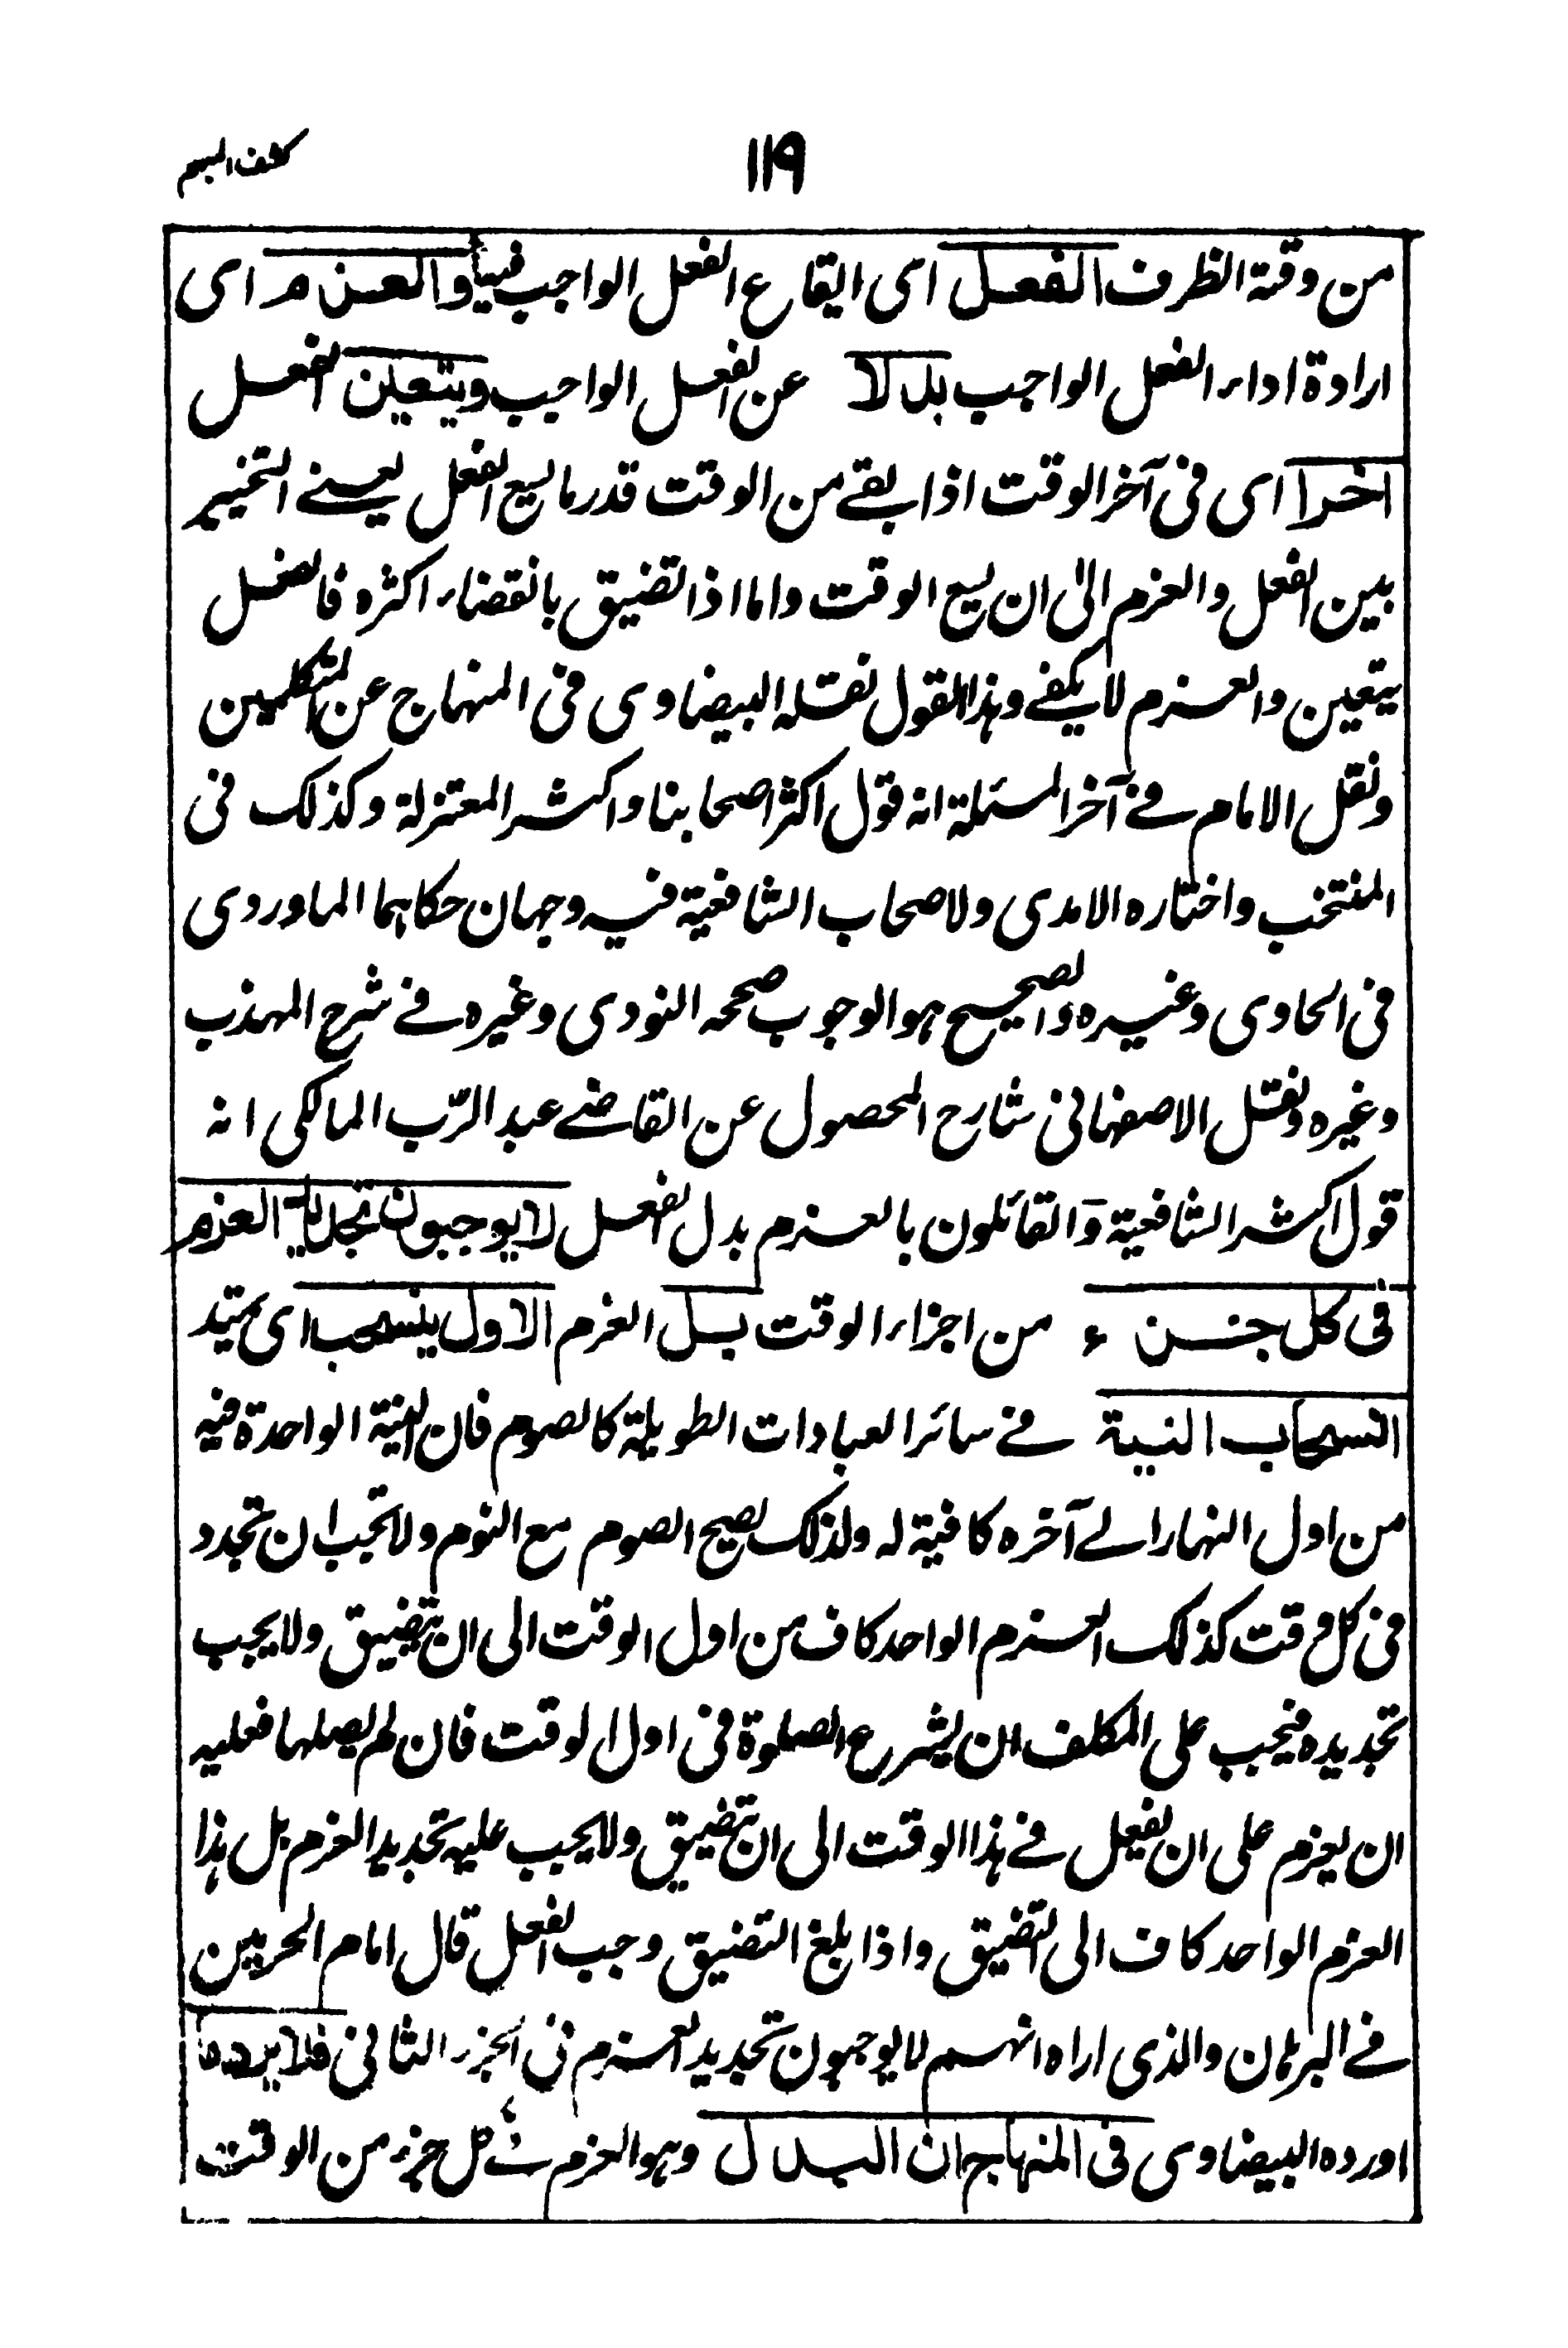 كشف المبهم
١١٩
من وقته الظرف الفعل اى ايقاع الفعل الواجب فيها والعزم اى
ارادة اداء الفعل الواجب بدلا عن الفعل الواجب ويتعين الفعل
اخرا اى فى آخر الوقت اذا بقے من الوقت قدر ما يسع الفعل يعنے التخيير
بين الفعل والعزم الى ان يسع الوقت واما اذا تضيق بانقضاء اكثره فالفعل
يتعين والعزم لا يكفے وهذا القول نقله البيضاوى فى المنهاج عن المتكلمين
ونقل الامام فے آخر المسئلة انه قول اكثر اصحابنا واكثر المعتزلة وكذلك فى
المنتخب واختاره الامدى ولاصحاب الشافعية فيه وجهان حكاهما الماوردى
فى الحاوى وغيره والصحيح هو الوجوب صححه النووى وغيره فے شرح المهذب
وغيره ونقل الاصفهانى شارح المحصول عن القاضے عبد الرّب المالكى انه
قول اكثر الشافعية والقائلون بالعزم بدل الفعل لا يوجبون تجديد العزم
فى كل جزء من اجزاء الوقت بل العزم الاول ينسحب اى يمتد
انسحاب النية فے سائر العبادات الطويلة كالصوم فان النية الواحدة فيه
من اول النهار الے آخره كافية له ولذلك يصح الصوم مع النوم ولا تجب ان تجدد
فى كل وقت كذلك العزم الواحد كاف من اول الوقت الى ان تضيق ولا يجب
تجديده فيجب على المكلف ان يشرع الصلوة فى اول الوقت فان لم يصلها فعليه
ان يعزم على ان يفعل فے هذا الوقت الى ان تضيق ولا يجب عليه تجديد العزم بل هذا
العزم الواحد كاف الى التضيق واذا بلغ التضيق وجب الفعل قال امام الحرمين
فے البرهان والذى اراه انهم لا يوجبون تجديد العزم فى الجزء الثانى فلا يرد ما
اورده البيضاوى فى المنهاج ان البدل وهو العزم فے كل جزء من الوقت